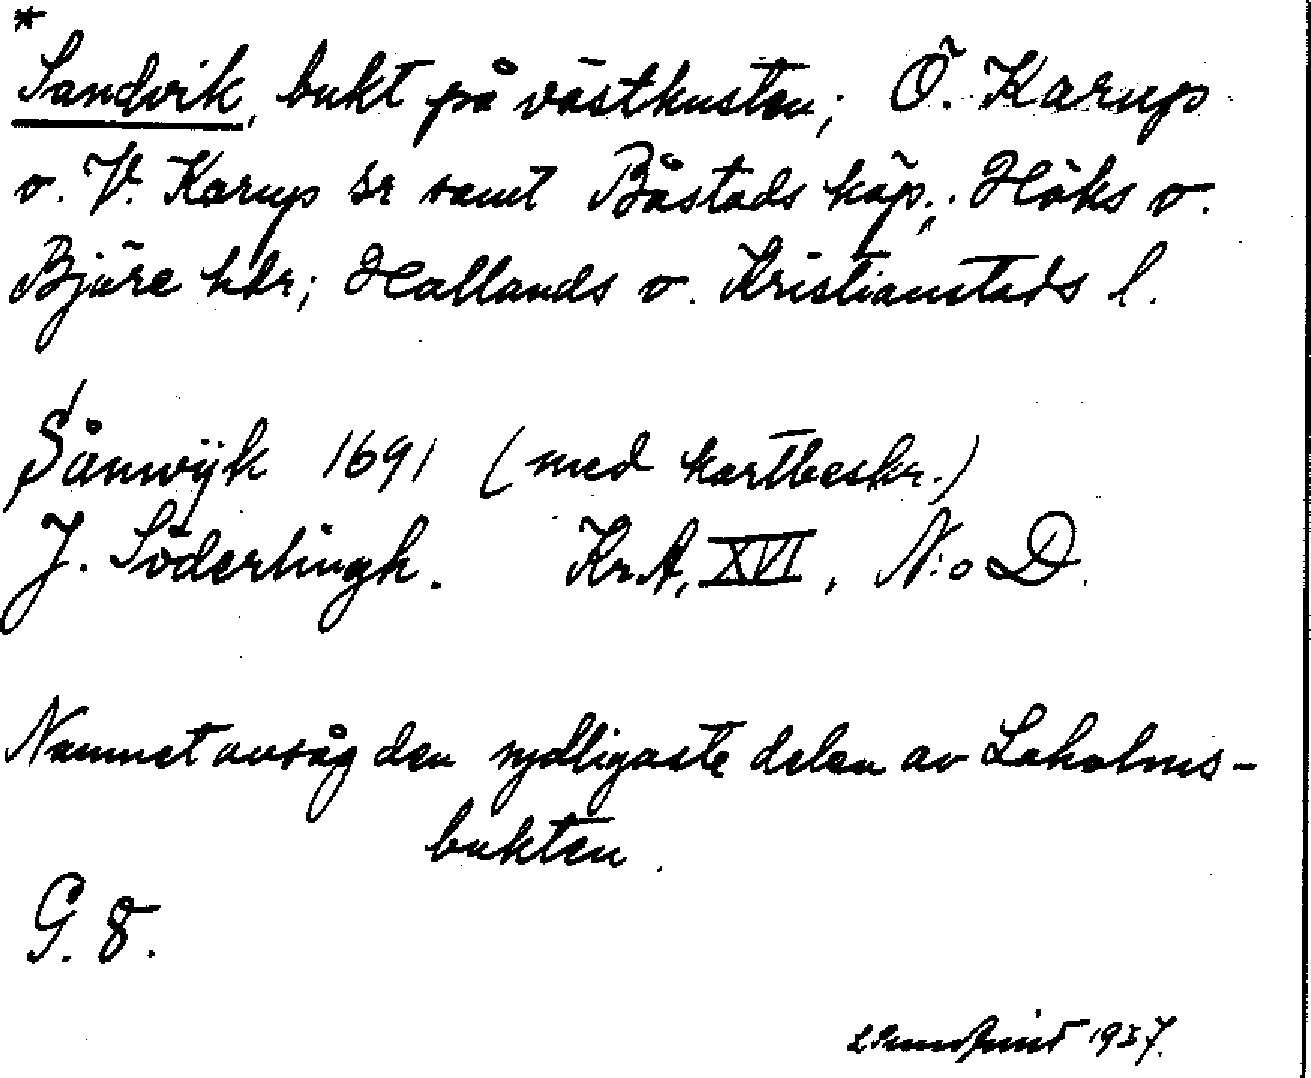 *
Sandvik, bukt på västkusten; Ö. Karup
o. V. Karup sr samt Båstads köp.; Höks o.
Bjäre hdr; Hallands o. Kristianstads l.
Sånwijk 1691 (med kartbeskr.)
J. Söderlingh. Kr.A. XVI, N:o D.
Namnet avsåg den sydligaste delen av Laholms-
bukten.
G. 8.
1937.